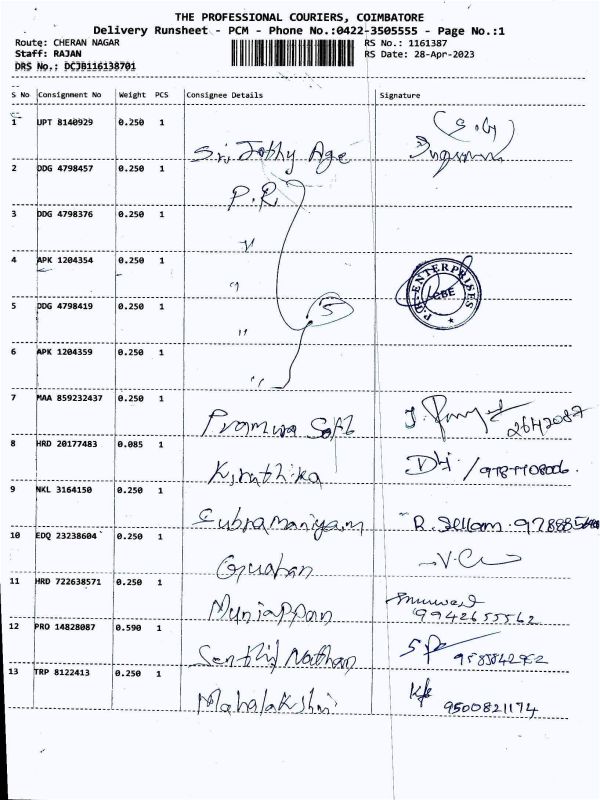 THE PROFESSIONAL COURIERS, COIMBATORE
Delivery Runsheet - PCM - Phone No.:0422-3505555 - Page No.:1
Route: CHERAN NAGAR RS No.: 1161387
Staff: RAJAN RS Date: 28-Apr-2023
DRS No.: DCJB116138701
S No Consignment No Weight PCS Consignee Details Signature
1 UPT 8140929 0.250 1
Sri Jothy Age
2 DDG 4798457 0.250 1
P.R.
3 DDG 4798376 0.250 1
4 APK 1204354 0.250 1
"
P.R. ENTERPRISES CBE
5 DDG 4798419 0.250 1
5
"
6 APK 1204359 0.250 1
"
7 MAA 859232437 0.250 1
Pramura Soft
2642087
8 HRD 20177483 0.085 1
Kiruthika
9 NKL 3164150 0.250 1
Subramaniyam R.
10 EDQ 23238604 0.250 1
Guahan
11 HRD 722638571 0.250 1
Muniappan 9942655562
12 PRO 14828087 0.590 1
Senthil Nathan
13 TRP 8122413 0.250 1
Mahalakshmi 9500821174